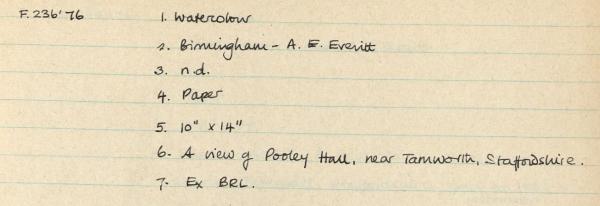 F.236'76 1. Watercolour
2. Birmingham - A. E. Everitt
3. n.d.
4. Paper
5. 10" x 14"
6. A view of Pooley Hall, near Tamworth, Staffordshire.
7. Ex BRL.